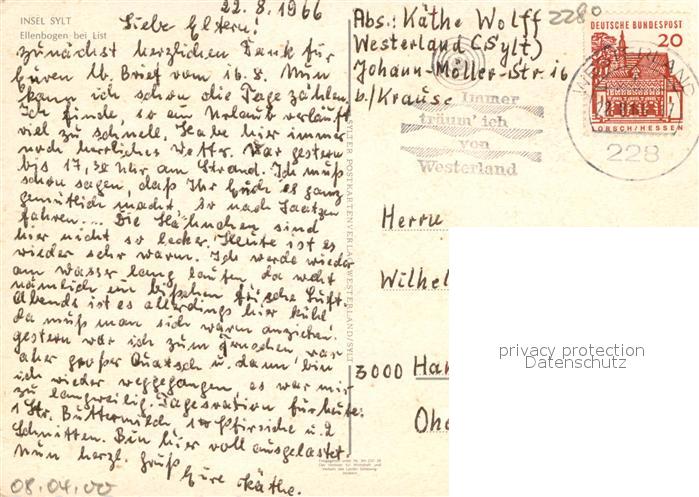 22.8.1966
INSEL SYLT
Ellenbogen bei List
Liebe Eltern!
zunächst herzlichen Dank für
Euren lb. Brief vom 16.8. Nun
kann ich schon die Tage zählen.
Ich finde, so ein Urlaub verläuft
viel zu schnell. Habe hier immer
noch herrliches Wetter. War gestern
bis 17,30 Uhr am Strand. Ich muß
schon sagen, daß Ihr Euch es ganz
gemütlich macht, so nach Laatzen
fahren... Die Hähnchen sind
hier nicht so lecker. Heute ist es
wieder sehr warm. Ich werde wieder
am Wasser lang laufen, da weht
nämlich ein bißchen frische Luft.
Abends ist es allerdings hier kühl
da muß man sich warm anziehen.
gestern war ich zum war
aber großer Quatsch u. dann bin
ich wieder weggegangen, es war mir
zu langweilig. Tagesration für heute:
1 Str. Buttermilch u. 2
Schnitten. Bin hier voll ausgelastet.
nun herzl. Gruß
Eure Käthe.
08.04.00
SYLTER POSTKARTENVERLAG WESTERLAND/SYLT
Abs.: Käthe Wolff
2280
Westerland (Sylt)
Johann-Möller-Str. 16
b./Krause
Immer
träum' ich
von
Westerland
DEUTSCHE BUNDESPOST
20
LORSCH/HESSEN
WESTERLAND
228
Herrn
Wilhel
3000 Han
Ohe
privacy protection
Datenschutz